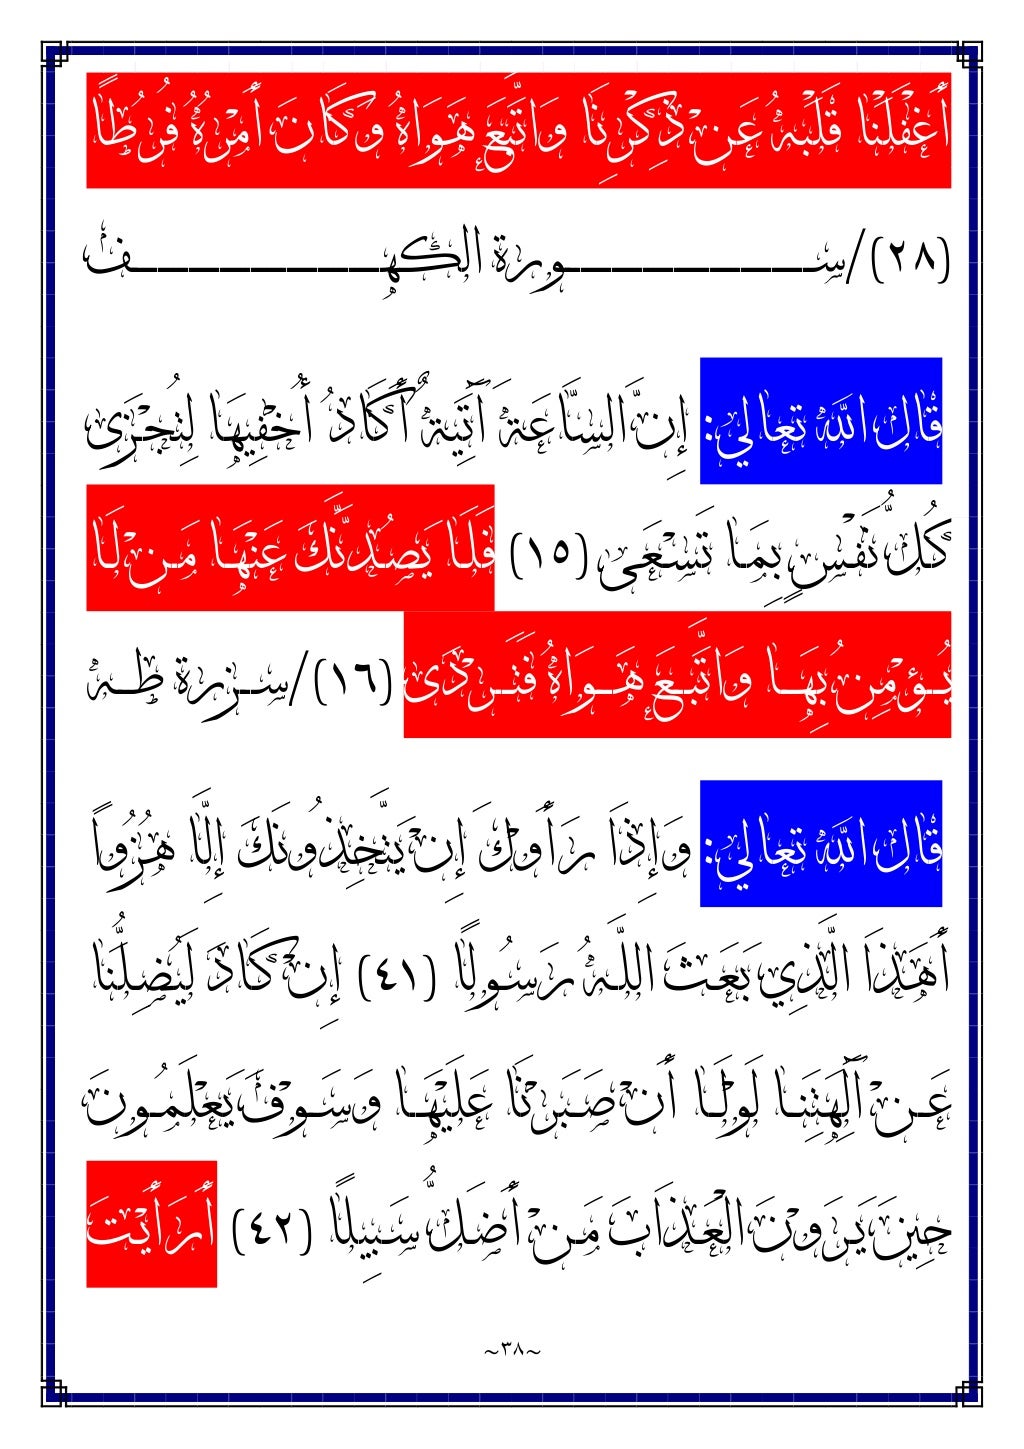 أَغْفَلْنَا قَلْبَهُ عَن ْذِكْرِنَا وَاتَّبَعَ هَوَاهُ وَكَانَ أَمْرُهُ فُرُطًا
(٢٨)/ســـورة الكهـــف
قال الله تعالي: إِنَّ السَّاعَةَ آَتِيَةٌ أَكَادُ أُخْفِيهَا لِتُجْزَى
كُلُّ نَفْسٍ بِمَا تَسْعَى (١٥) فَلَـا يَصُدَّنَّكَ عَنْهَـا مَـنْ لَا
يُـؤْمِنُ بِهَـا وَاتَّبَـعَ هَـوَاهُ فَتَـرْدَى (١٦)/سـزرة طـه
قال الله تعالي: وَإِذَا رَأَوكَ إِنْ يَتَّخِذُونَكَ إِلَّا هُزُوًا
أَهَـذَا الَّذِي بَعَـثَ اللَّـهُ رَسُـولًا (٤١) إِنْ كَادَ لَيُضِلُّنَا
عَـنْ آَلِهَتِنَـا لَوْلَـا أَنْ صَـبَرْنَا عَلَيْهَـا وَسَـوْفَ يَعْلَمُـونَ
حِينَ يَرَوْنَ الْعَذَابَ مَـنْ أَضَـلُّ سَـبِيلًا (٤٢) أَرَأَيْتَ
~٣٨~